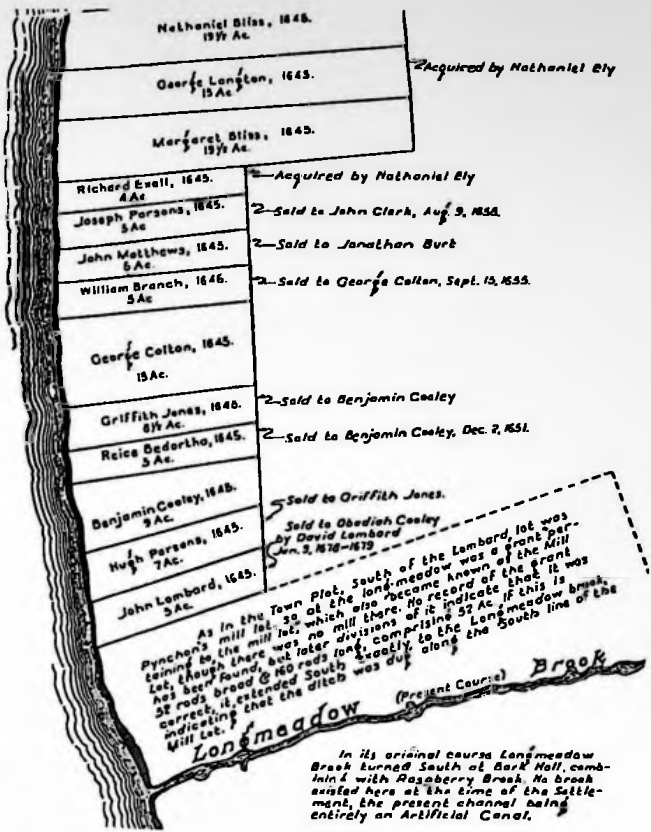 Nathaniel Bliss, 1645.
19½ Ac.
George Langton, 1645.
15 Ac
Acquired by Nathaniel Ely
Margaret Bliss, 1645.
19½ Ac.
Richard Exall, 1645.
4 Ac
Acquired by Nathaniel Ely
Joseph Parsons, 1645.
5 Ac
Sold to John Clark, Aug. 9, 1658.
John Matthews, 1645.
6 Ac.
Sold to Jonathan Burt
William Branch, 1646.
5 Ac
Sold to George Colton, Sept. 15, 1655.
George Colton, 1645.
15 Ac.
Griffith Jones, 1645.
6½ Ac.
Sold to Benjamin Cooley
Reice Bedortha, 1645.
5 Ac.
Sold to Benjamin Cooley, Dec. 2, 1651.
Benjamin Cooley, 1645.
9 Ac.
Hugh Parsons, 1645.
7 Ac.
Sold to Griffith Jones.
John Lombard, 1645.
5 Ac.
Sold to Obediah Cooley
by David Lombard
Jan. 9, 1678-1679
As in the Town Plot, South of the Lombard lot was
Pynchon's mill lot, so at the long-meadow was a grant per-
taining to the mill lot, which also became known as the Mill
Lot, though there was no mill there. No record of the grant
has been found, but later divisions of it indicate that it was
52 rods broad & 160 rods long, comprising 52 Ac. If this is
correct, it extended South exactly to the Longmeadow brook,
indicating that the ditch was dug along the South line of the
Mill Lot.
Longmeadow (Present Course) Brook
In its original course Longmeadow
Brook turned South at Bark Hall, comb-
ining with Raspberry Brook. No brook
existed here at the time of the Settle-
ment, the present channel being
entirely an Artificial Canal.